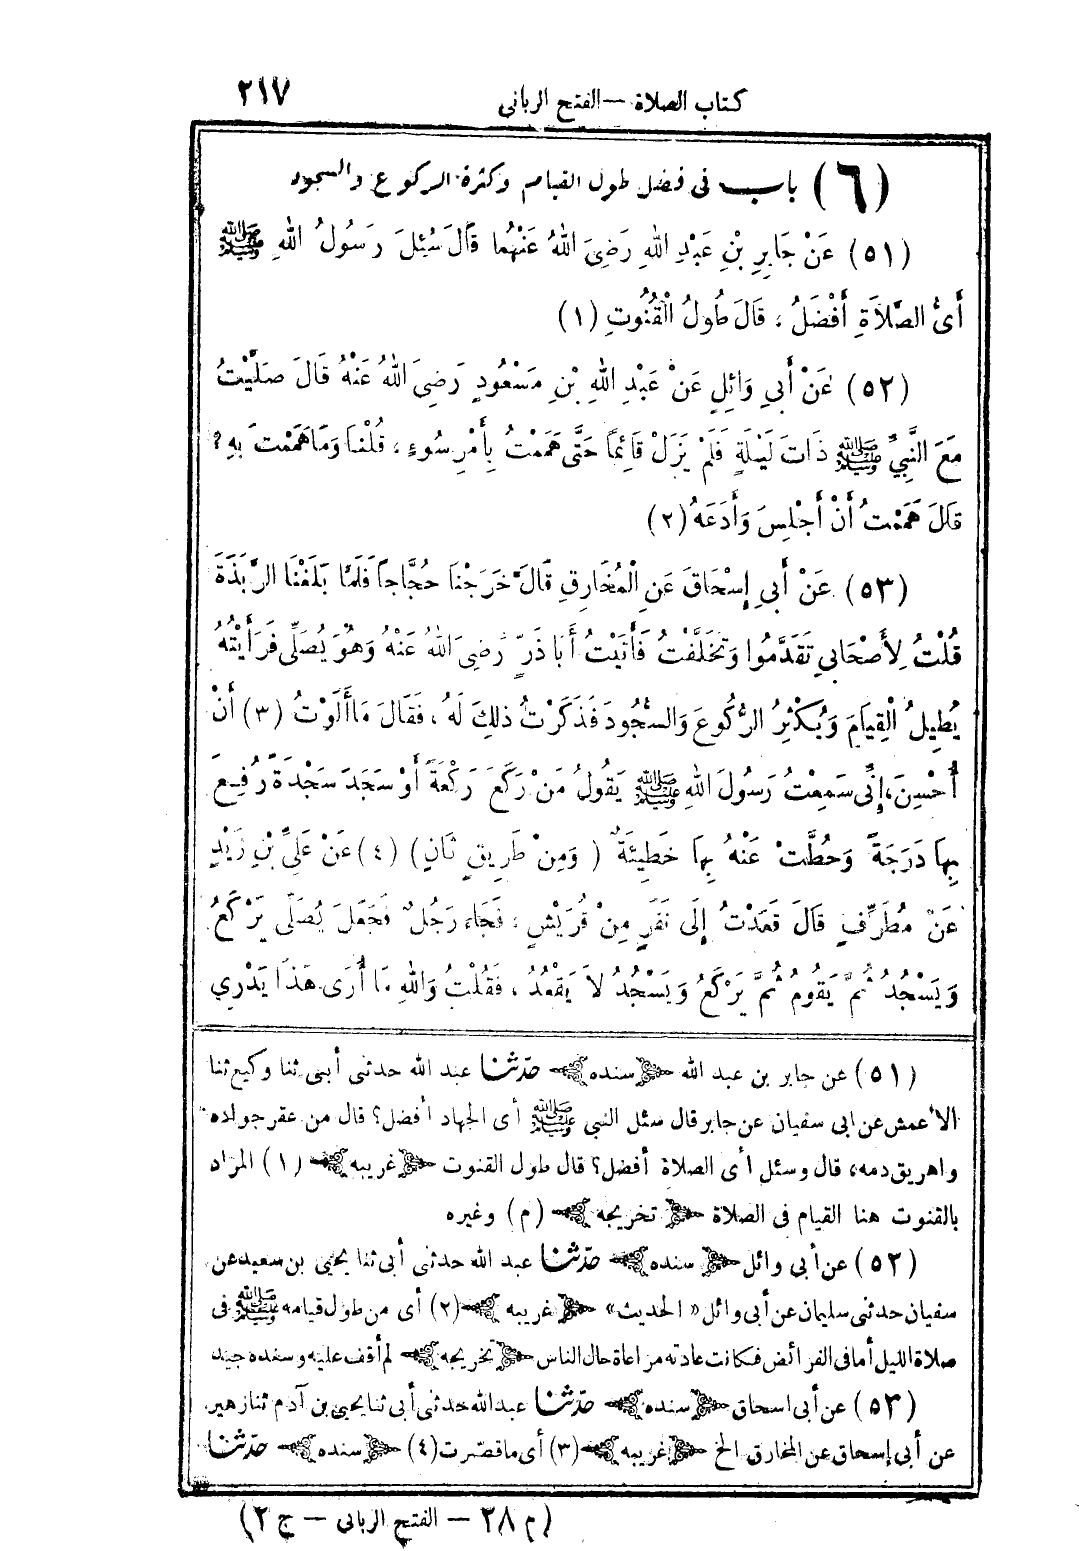 كتاب الصلاة — الفتح الربانى ٢١٧
(٦) باب فى فضل طول القيام وكثرة الركوع والسجود
(٥١) عَنْ جَابِرِ بْنِ عَبْدِ اللهِ رَضِىَ اللهُ عَنْهُمَا قَالَ سُئِلَ رَسُولُ اللهِ ﷺ
أَىُّ الصَّلاَةِ أَفْضَلُ ، قَالَ طُولُ الْقُنُوتِ (١)
(٥٢) عَنْ أَبِى وَائِلٍ عَنْ عَبْدِ اللهِ بْنِ مَسْعُودٍ رَضِىَ اللهُ عَنْهُ قَالَ صَلَّيْتُ
مَعَ النَّبِىِّ ﷺ ذَاتَ لَيْلَةٍ فَلَمْ يَزَلْ قَائِمًا حَتَّى هَمَمْتُ بِأَمْرِ سُوءٍ ، قُلْنَا وَمَا هَمَمْتَ بِهِ؟
قَالَ هَمَمْتُ أَنْ أَجْلِسَ وَأَدَعَهُ (٢)
(٥٣) عَنْ أَبِى إِسْحَاقَ عَنِ الْمُخَارِقِ قَالَ خَرَجْنَا حُجَّاجاً فَلَمَّا بَلَغْنَا الرَّبَذَةَ
قُلْتُ لِأَصْحَابِى تَقَدَّمُوا وَتَخَلَّفْتُ فَأَتَيْتُ أَبَا ذَرٍّ رَضِىَ اللهُ عَنْهُ وَهُوَ يُصَلِّى فَرَأَيْتُهُ
يُطِيلُ الْقِيَامَ وَيُكْثِرُ الرُّكُوعَ وَالسُّجُودَ فَذَكَرْتُ ذٰلِكَ لَهُ ، فَقَالَ مَا أَلَوْتُ (٣) أَنْ
أُحْسِنَ، إِنِّى سَمِعْتُ رَسُولَ اللهِ ﷺ يَقُولُ مَنْ رَكَعَ رَكْعَةً أَوْ سَجَدَ سَجْدَةً رُفِعَ
بِهَا دَرَجَةً وَحُطَّتْ عَنْهُ بِهَا خَطِيئَةٌ (وَمِنْ طَرِيقٍ ثَانٍ) (٤) عَنْ عَلِىِّ بْنِ زَيْدٍ
عَنْ مُطَرِّفٍ قَالَ قَعَدْتُ إِلَى نَفَرٍ مِنْ قُرَيْشٍ ، فَجَاءَ رَجُلٌ فَجَعَلَ يُصَلِّى يَرْكَعُ
وَيَسْجُدُ ثُمَّ يَقُومُ ثُمَّ يَرْكَعُ وَيَسْجُدُ لاَ يَقْعُدُ ، فَقُلْتُ وَاللهِ مَا أَرَى هَذَا يَدْرِي
(٥١) عن جابر بن عبد الله ﴿سنده﴾ حدّثنا عبد الله حدثنى أبى ثنا وكيع ثنا
الأعمش عن ابى سفيان عن جابر قال سئل النبى ﷺ أى الجهاد أفضل؟ قال من عقر جواده
واهريق دمه، قال وسئل أى الصلاة أفضل؟ قال طول القنوت ﴿غريبه﴾ (١) المراد
بالقنوت هنا القيام فى الصلاة ﴿تخريجه﴾ (م) وغيره
(٥٢) عن أبى وائل ﴿سنده﴾ حدّثنا عبد الله حدثنى أبى ثنا يحيى بن سعيد عن
سفيان حدثنى سليمان عن أبى وائل «الحديث» ﴿غريبه﴾ (٢) أى من طول قيامه ﷺ فى
صلاة الليل أما فى الفرائض فكانت عادته مراعاة حال الناس ﴿تخريجه﴾ لم أقف عليه وسنده جيد
(٥٣) عن أبى اسحاق ﴿سنده﴾ حدّثنا عبد الله حدثنى أبى ثنا يحيى بن آدم ثنا زهير
عن أبى إسحاق عن المخارق الخ ﴿غريبه﴾ (٣) أى ما قصّرت (٤) ﴿سنده﴾ حدّثنا
(م ٢٨ — الفتح الربانى — ج ٣)